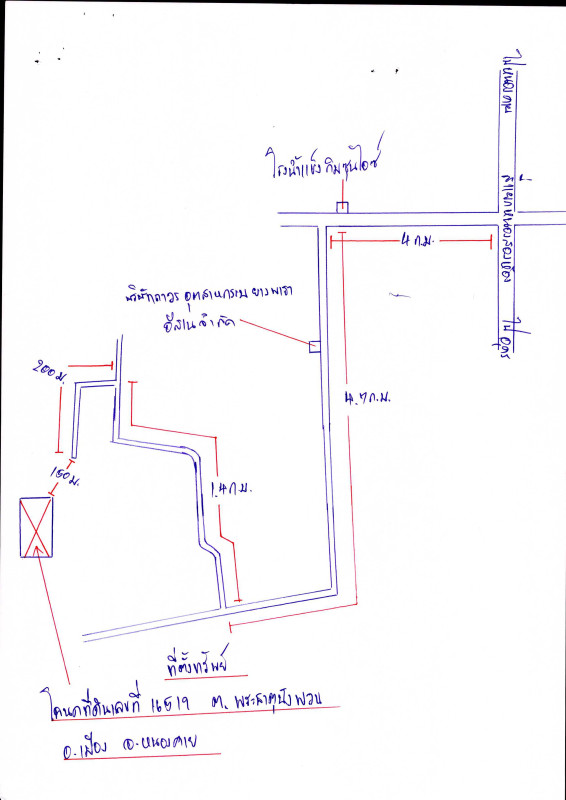 ไปหนองคาย
สี่แยกหนองสองห้อง
ไป อุดร
โรงน้ำแข็ง กิมซุนไอซ์
4 ก.ม.
บริษัทถาวร อุตสาหกรรม ยางพารา
อีสาน จำกัด
200 ม.
4.7 ก.ม.
150 ม.
1.4 ก.ม.
ที่ตั้งทรัพย์
โฉนดที่ดินเลขที่ 16519 ต. พระธาตุบังพวน
อ.เมือง จ.หนองคาย